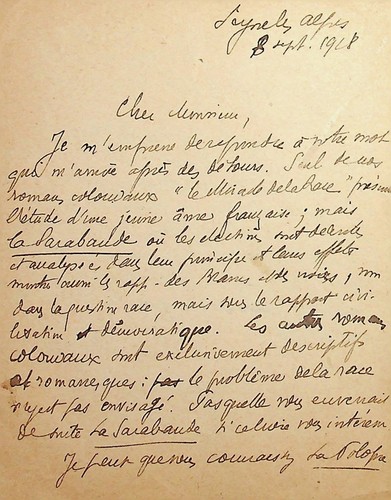 Seyne les Alpes
8 sept. 1918
Cher Monsieur,
Je m'empresse de repondre à votre mot
qui m'arrive après des détours. Seul de nos
romans coloniaux "le Miracle de la Race" présente
l'étude d'une jeune âme française ; mais
la Sarabande où les élections sont décrites
et analysées dans leur principe et leurs effets
montre aussi le rapp- des Blancs et des noirs, non
dans la question race, mais sous le rapport civi-
lisation et démocratique. Les autres romans
coloniaux sont exclusivement descriptifs
et romanesques : le problème de la race
n'y est pas envisagé. Pasquelle vous enverrait
de suite La Sarabande si celui-ci vous intéresse
Je peux que vous connaissez La Polofa